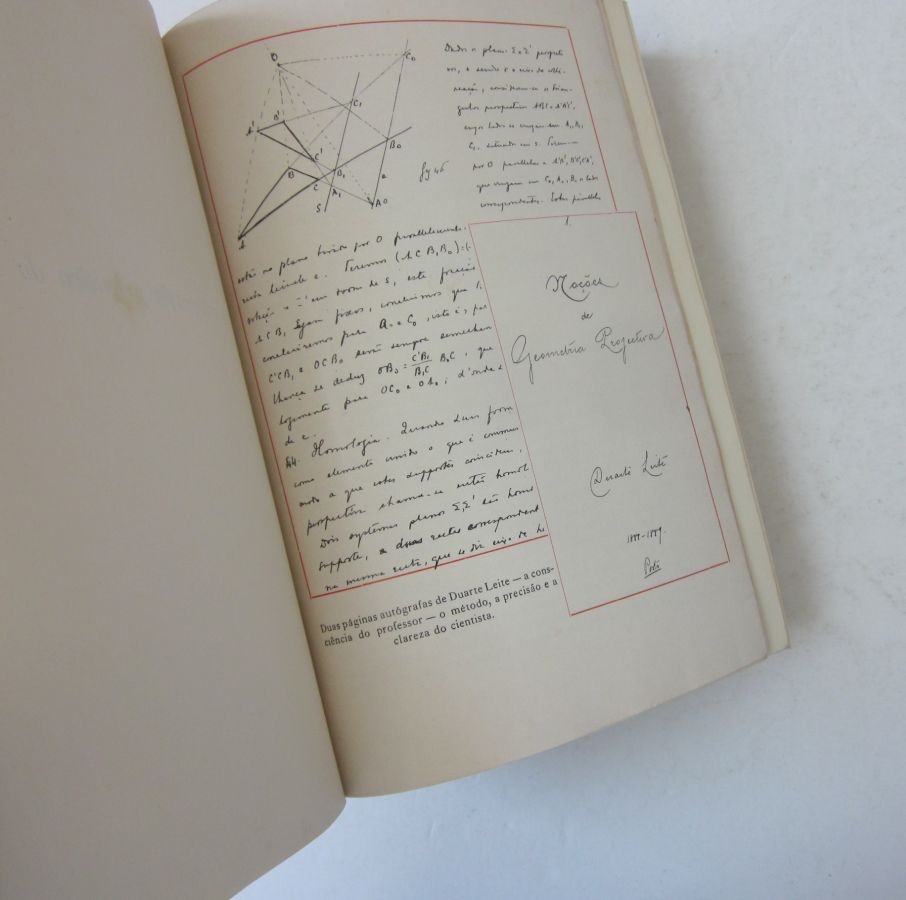 O
C₀
A'
B'
C₁
C'
B₀
B
C
B₁
A₁
S
A₀
A
fig 46
Dados os planos Σ e Σ' perspecti
vos, e sendo s o eixo de colli-
neação, consideremos os trian-
gulos perspectivos ABC e A'B'C',
cujos lados se cruzam em A₁, B₁,
C₁, situados em s. Tiremos
por O parallelas a A'B', B'C', C'A',
que cruzam em C₀, A₀, B₀ os lados
correspondentes. Estas parallelas
estão no plano tirado por O parallelamente
recta limite e. Teremos (A C B₁ B₀) =
em torno de s, esta
A C B₁ sejam fixos, concluimos que
para A₀ e C₀, isto é; s
C'CB₁ e OCB₀ serão sempre semelhan
lhança se deduz OB₀ = C'B₁/B₁C B₀C, que
logamente para OC₀ e OA₀; d'onde
de e.
44. Homologia. Quando duas form
como elemento unido o que é commum
modo a que estes supportes coincidam,
perspectiva chama-se então homol
Dois systemas planos Σ, Σ' são homo
supporte, e duas rectas correspondent
na mesma recta, que se diz eixo de ho
1.
Noções
de
Geometria Projectiva
Duarte Leite
Porto
Duas páginas autógrafas de Duarte Leite — a cons-
ciência do professor — o método, a precisão e a
clareza do cientista.